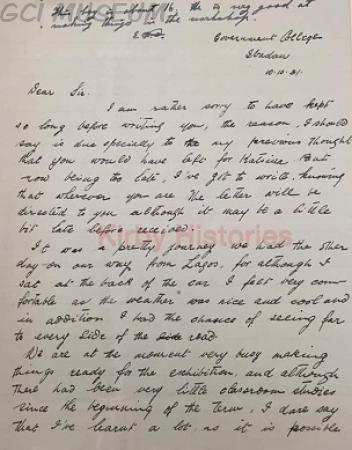 GCI MUSEUM
This boy is about 16. He is very good at
making things in the workshop.
Government College
Ibadan
10.10.31.
Dear Sir.
I am rather sorry to have kept
so long before writing you, the reason, I should
say is due specially to my previous thought
that you would have left for Katsina. But
now being too late, I've got to write, knowing
that wherever you are the letter will be
directed to you although it may be a little
bit late before received.
Kirby Histories
It was a pretty journey we had the other
day on our way from Lagos, for although I
sat at the back of the car I felt very com-
fortable as the weather was nice and cool and
in addition I had the chance of seeing far
to every side of the side road
We are at the moment very busy making
things ready for the exhibition, and although
there had been very little classroom studies
since the beginning of the Term, I dare say
that I've learnt a lot, as it is possible